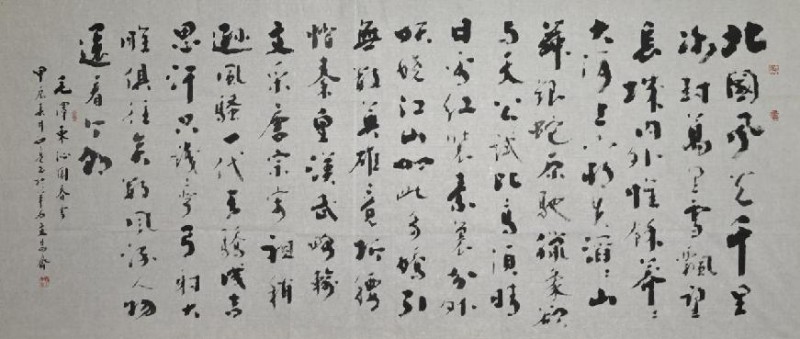 北國風光千里
冰封萬里雪飄望
長城内外惟餘莽〻
大河上下頓失滔〻山
舞銀蛇原馳蠟象欲
与天公試比高須晴
日看紅裝素裹分外
妖嬈江山如此多嬌引
無數英雄競折腰
惜秦皇漢武略輸
文采唐宗宋祖稍
遜風騷一代天驕成吉
思汗只識彎弓射大
雕俱往矣數風流人物
還看今朝
毛澤東沁園春雪
甲辰春月